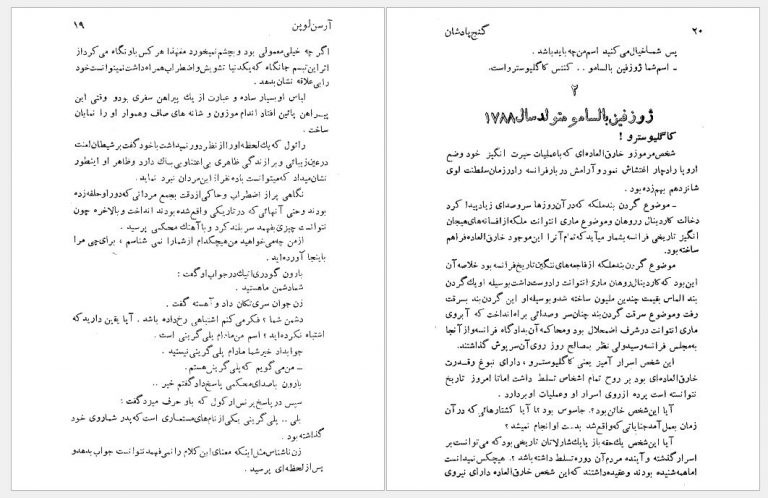 آرسن لوپن
۱۹
اگر چه خیلی معمولی بود و بچشم نمیخورد معهذا هر کس باو نگاه می کرد از
اثر این تبسم جانگاه که یکدنیا تشویش و اضطراب همراه داشت نمیتوانست خود
را بی علاقه نشان بدهد .
لباس او بسیار ساده و عبارت از یک پیراهن سفری بود و وقتی این
پیراهن پائین افتاد اندام موزون و شانه های صاف و هموار او را نمایان
ساخت .
رائول که یک لحظه او را از نظر دور نمیداشت با خود گفت بر شیطان لعنت
در عین زیبائی و برازندگی ظاهری بی اعتنا و بی باک دارد و ظاهر او اینطور
نشان میداد که میتوانست با ده نفر از این مردان نبرد نماید .
نگاهی پر از اضطراب و حاکی از دقت بجمع مردانی که دور او حلقه زده
بودند و حتی آنهائی که در تاریکی واقع شده بودند انداخت و بالاخره چون
نتوانست چیزی بفهمد سر بلند کرد و با آهنگ محکمی پرسید .
از من چه می خواهید من هیچکدام از شما را نمی شناسم ، برای چی مرا
باینجا آورده اید .
بارون گودری اتیک در جواب او گفت :
شما دشمن ما هستید .
زن جوان سری تکان داد و آهسته گفت .
دشمن شما ؟ فکر می کنم اشتباهی رخ داده باشد . آیا یقین دارید که
اشتباه نکرده اید ؟ اسم من مادام پلی گرینی است .
جواب داد خیر شما مادام پلی گرینی نیستید .
ـ من می گویم که پلی گرینی هستم .
بارون با صدای محکمی پاسخ داد گفتم خیر ..
سپس در پاسخ پرنس ارکول که باو حرف میزد گفت :
بلی .. پلی گرینی یکی از نام های مستعاری است که پدر شما روی خود
گذاشته بود .
زن ناشناس مثل اینکه معنای این کلام را نمی فهمد نتوانست جواب بدهد و
پس از لحظه ای پرسید .
گنج پادشان
۲۰
پس شما خیال می کنید اسم من چه باید باشد .
ـ اسم شما ژوزفین بالسامو . . کنتس کاگلیوسترو است .
۲
ژوزفین بالسامو متولد سال ۱۷۸۸
کاگلیوسترو !
شخص مرموز و خارق العاده ای که با عملیات حیرت انگیز خود وضع
اروپا را دچار اغتشاش نمود و آرامش دربار فرانسه را در زمان سلطنت لوی
شانزدهم بهم زده بود .
ـ موضوع گردن بند ملکه که در آن روزها سر و صدای زیاد پیدا کرد
دخالت کاردینال روهان و موضوع ماری انتوانت ملکه از افسانه های هیجان
انگیز تاریخی فرانسه بشمار میآید که تمام آنرا این موجود خارق العاده فراهم
ساخته بود .
موضوع گردن بند ملکه از فاجعه های ننگین تاریخ فرانسه بود خلاصه آن
این بود که کاردینال روهان ماری انتوانت را دوست داشت بوسیله او یک گردن
بند الماس بقیمت چندین ملیون ساخته شد و بوسیله او این گردن بند بسرقت
رفت و موضوع سرقت گردن بند چنان سر و صدائی براه انداخت که آبروی
ماری انتوانت در شرف اضمحلال بود و محاکمه آن بدادگاه فرانسه و از آنجا
به مجلس فرانسه رسید ولی نظر بمصالح روز روی آن سرپوش گذاشتند .
این شخص اسرار آمیز یعنی کاگلیوسترو ، دارای نبوغ و قدرت
خارق العاده ای بود بر روح تمام اشخاص تسلط داشت اما تا امروز تاریخ
نتوانسته است پرده از روی اسرار او و عملیات او بردارد .
آیا این شخص خائن بود ؟ جاسوس بود ؟ تا آیا کشتارهائی که در آن
زمان بعمل آمد جنایاتی که واقع شد بدست او انجام نمیشد ؟
آیا این شخص یک حقه باز یا یک شارلاتان تاریخی بود که می توانست بر
اسرار گذشته و آینده مردم آن دوره تسلط داشته باشد ؟ هیچکس نمیدانست
اما همه شنیده بودند و عقیده داشتند که این شخص خارق العاده دارای نیروی